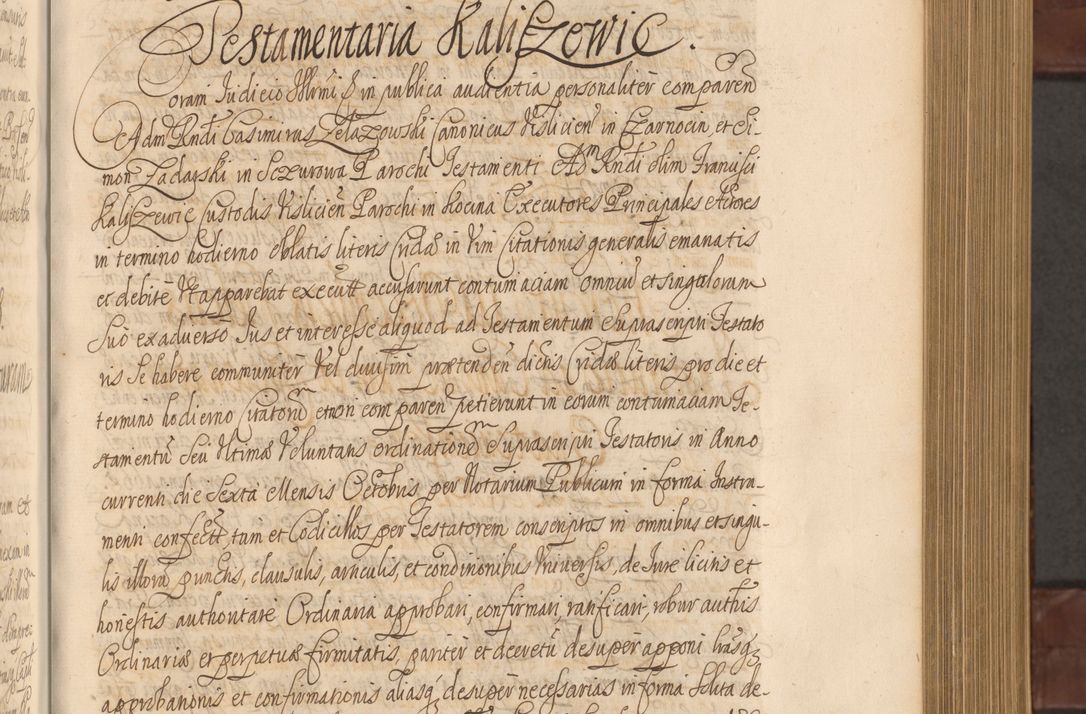 Testamentaria Kaliszewic.
Coram Iudicio Illrmi & in publica audientia personaliter comparen
Adm Rndi Casimirus Zelazowski Canonicus Vislicien in Czarnocin, et Si-
mon Zadarski in Sczurowa Parochi Testamenti Adm Rndi olim Francisci
Kaliszewic Custodis Vislicien Parochi in Kocina Executores Principales et Actores
in termino hodierno oblatis literis Cridae in Vim Citationis generalis emanatis
et debite Ut apparebat executt accusarunt contumaciam omniu et singulorum
suo ex adverso Ius et interesse aliquod ad Testamentum Suprascripti Testato
ris Se habere communiter Vel divisim praetenden dictis Cridae literis pro die et
termino hodierno Citatoru et non comparen petierunt in eorum contumaciam Te-
stamentu Seu Ultimae Voluntatis ordinatione Suprascripti Testatoris in Anno
currenti die Sexta Mensis Octobris per Notarium Publicum in forma Instru-
menti confectt, tam et Codicillos per Testatorem conscriptos in omnibus et singu-
lis illoru punctis, clausulis, articulis, et conditionibus Universis, de Iure licitis et
honestis authoritate Ordinaria approbari, confirmari, ratificari, robur authis
Ordinariae et perpetuae firmitatis, pariter et decretu desuper apponi hasq
approbationis et confirmationis aliasq desuper necessarias in forma Solita de-